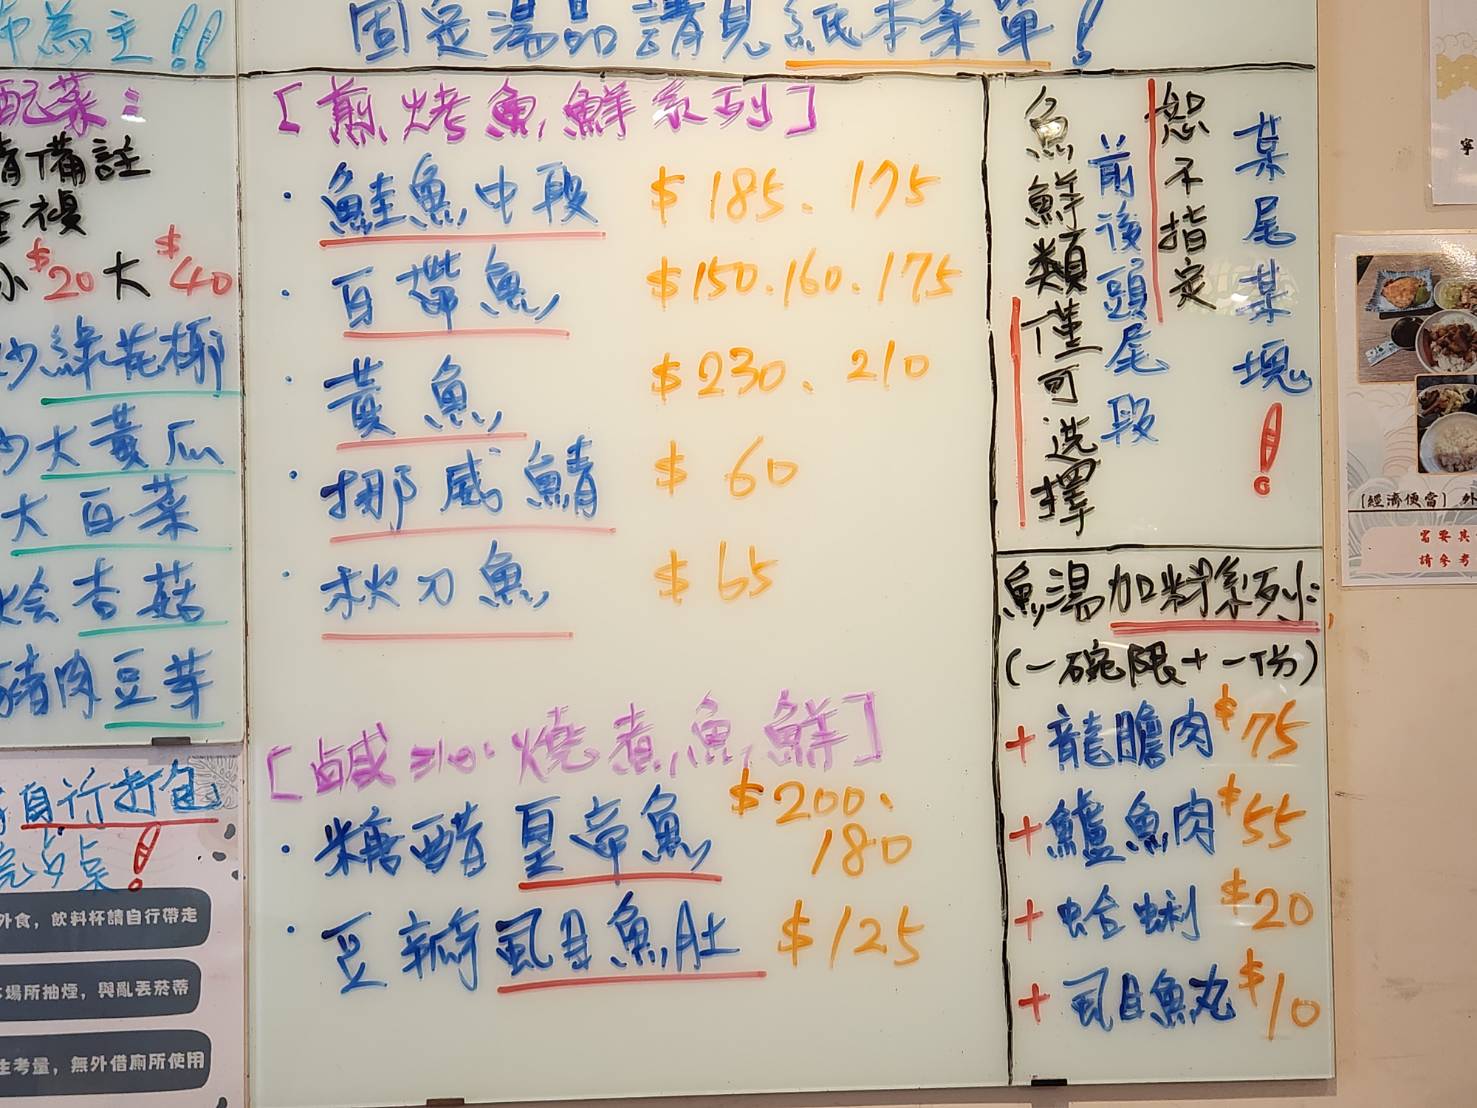 為主!!
固定湯品請見紙本菜單!
配菜:
請備註
小$20大$40
炒綠花椰
大黃瓜
大白菜
燴香菇
豬肉豆芽
[煎.烤魚鮮系列]
·鮭魚中段 $185、175
·白帶魚 $150.160.175
·黃魚 $230、210
·挪威鯖 $60
·秋刀魚 $65
[鹹水.燒煮魚鮮]
·糖醋皇帝魚 $200、
180
·豆瓣虱目魚肚 $125
某尾某塊!
恕不指定
前後頭尾段
魚鮮類僅可選擇
魚湯加料系列:
(一碗限+一份)
+龍膽肉$75
+鱸魚肉$55
+蛤蜊$20
+虱目魚丸$10
自行打包
完桌!
外食,飲料杯請自行帶走
場所抽煙,與亂丟菸蒂
生考量,無外借廁所使用
寧
[經濟便當]外
需要其
請參考